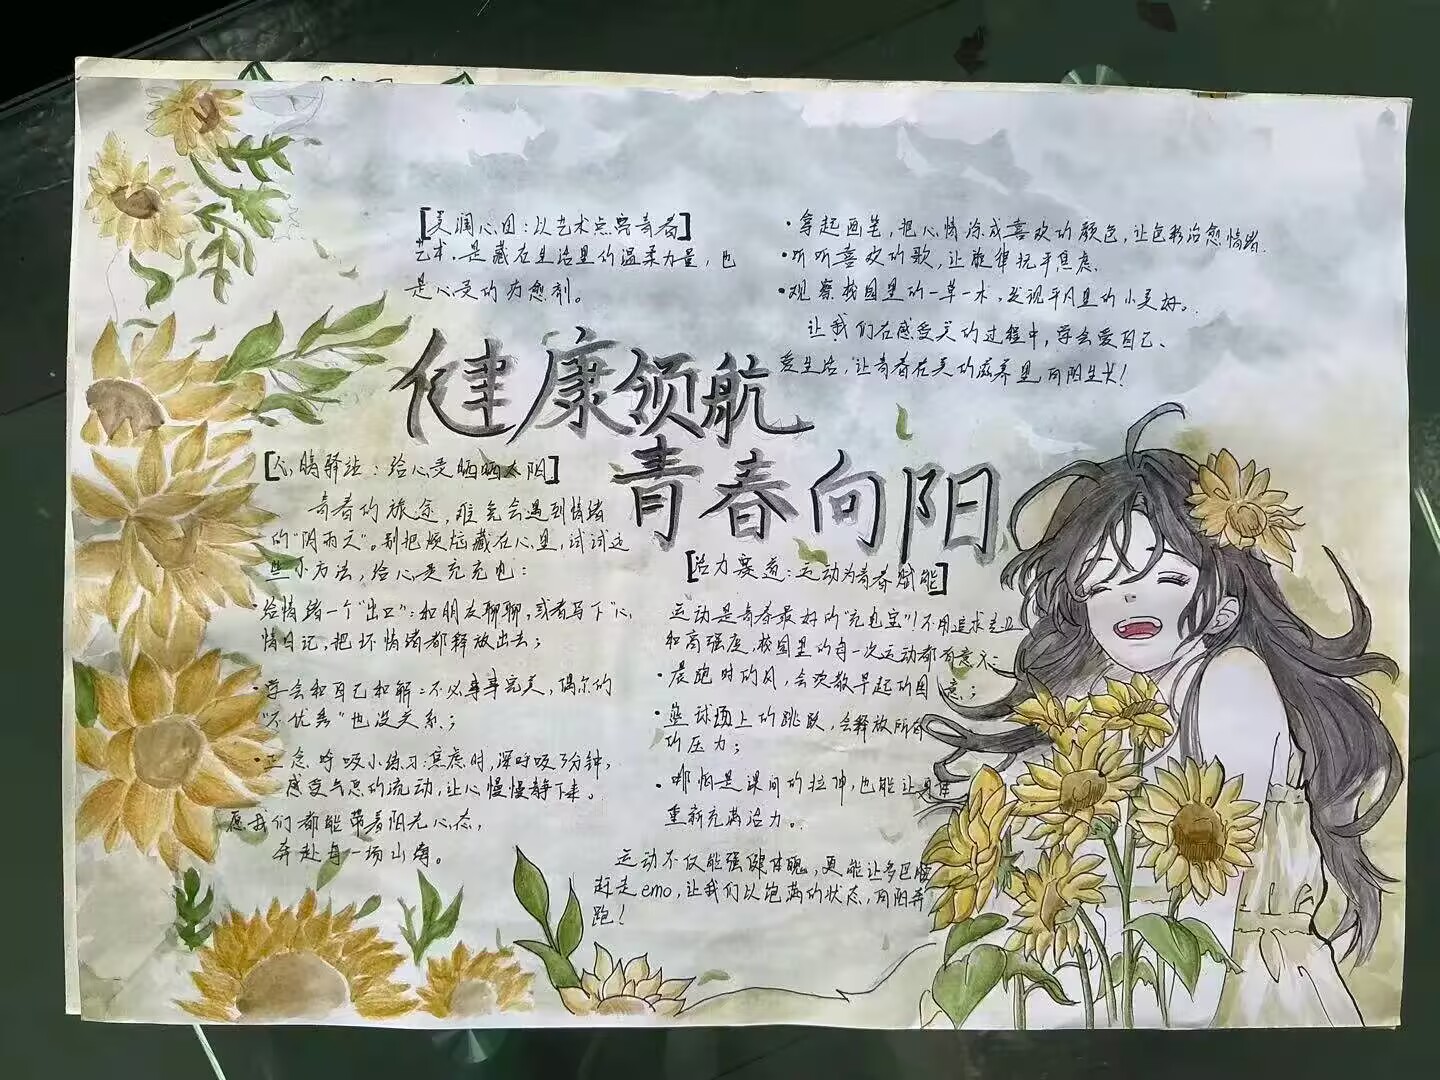 [美润心田：以艺术点亮青春]
艺术，是藏在生活里的温柔力量，也
是心灵的治愈剂。
·拿起画笔，把心情涂成喜欢的颜色，让色彩治愈情绪.
·听听喜欢的歌，让旋律抚平焦虑.
·观察校园里的一草一木，发现平凡里的小美好。
让我们在感受美的过程中，学会爱自己、
爱生活，让青春在美的滋养里，向阳生长！
健康领航
青春向阳
[心晴驿站：给心灵晒晒太阳]
青春的旅途，难免会遇到情绪
的“阴雨天”。别把烦恼藏在心里，试试这
些小方法，给心灵充充电：
·给情绪一个“出口”：和朋友聊聊，或者写下“心
情日记，把坏情绪都释放出去；
·学会和自己和解：不必事事完美，偶尔的
“不优秀”也没关系；
·正念呼吸小练习：焦虑时，深呼吸3分钟，
感受气息的流动，让心慢慢静下来。
愿我们都能带着阳光心态，
奔赴每一场山海。
[活力赛道：运动为青春赋能]
运动是青春最好的“充电宝”！不用追求专业
和高强度，校园里的每一次运动都有意义：
·晨跑时的风，会吹散早起的困意；
·篮球场上的跳跃，会释放所有
的压力；
·哪怕是课间的拉伸，也能让身体
重新充满活力。
运动不仅能强健体魄，更能让多巴胺
赶走emo，让我们以饱满的状态，向阳奔
跑！